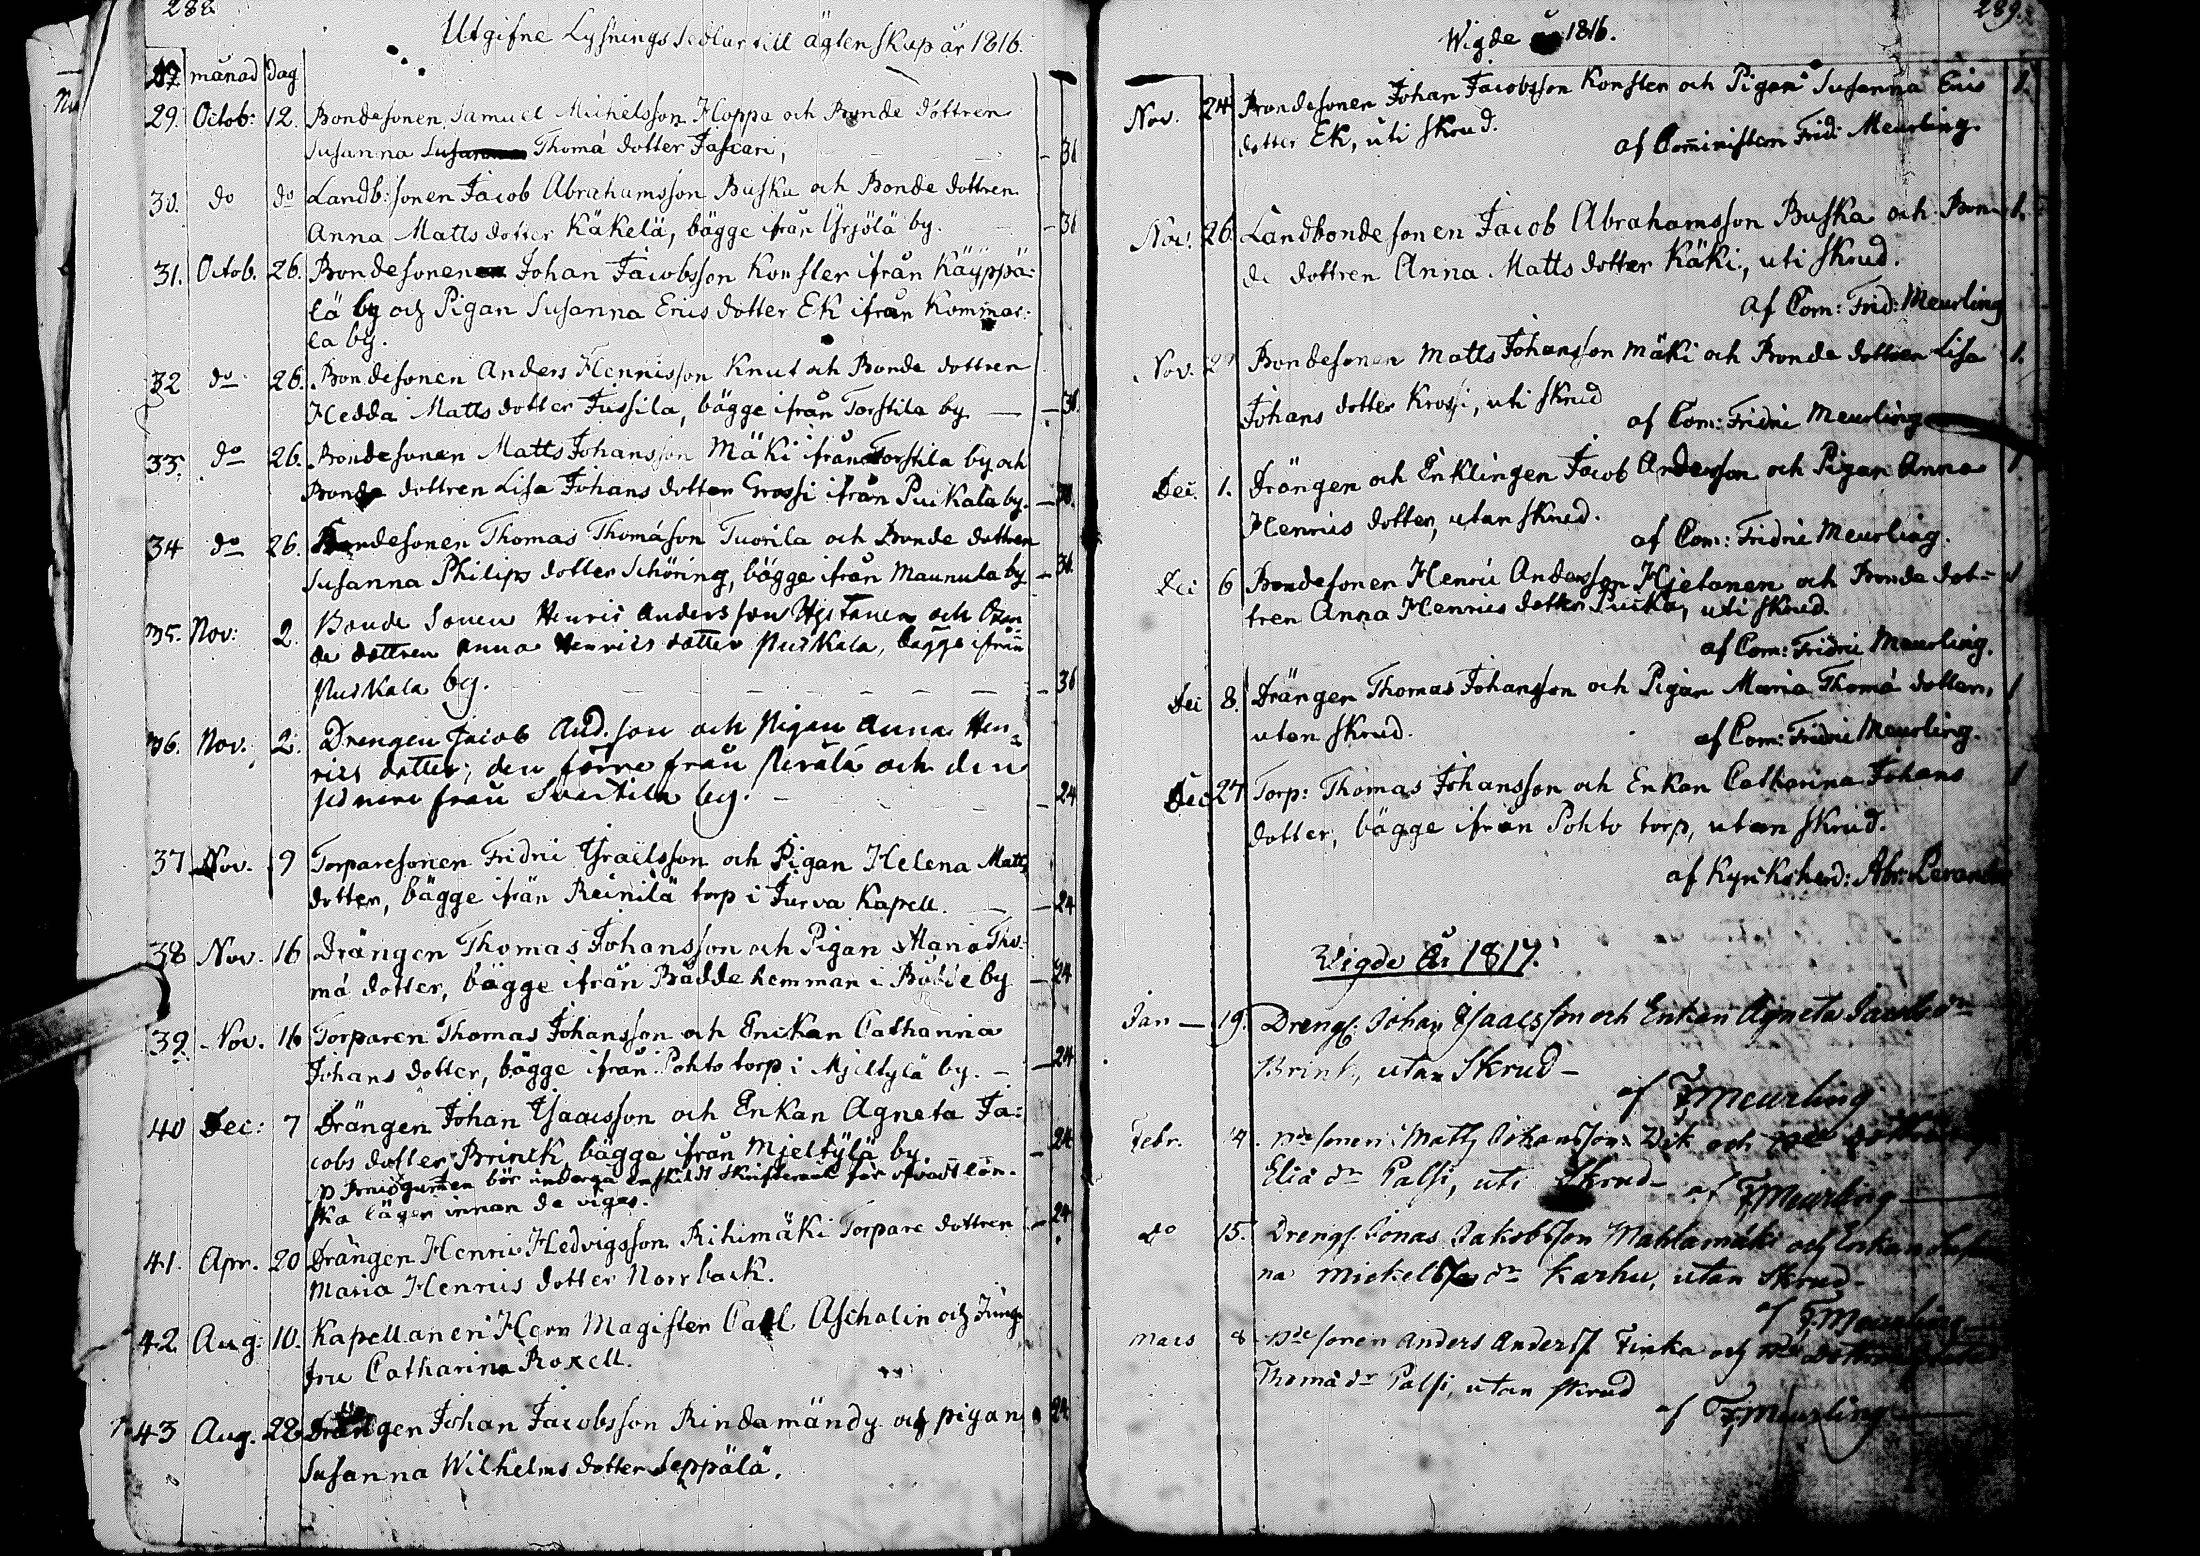 288.
Utgifne Lysnings sedlar till ägtenskap år 1816.
månad dag
29. Octob: 12. Bondesonen Samuel Michelsson Hoppa och Bonde dottren
Susanna Thomæ dotter Jascari, 31
30. do do Landb: sonen Jacob Abrahamsson Buska och Bonde dottren
Anna Matts dotter Käkelä, bägge ifrån Yrjölä by. 31
31. Octob. 26. Bondesonen Johan Jacobsson Konster ifrån Käyppä-
lä by och Pigan Susanna Erics dotter Ek ifrån Kommar-
la by.
32 do 26. Bondesonen Anders Hennisson Knut och Bonde dottren
Hedda Matts dotter Jussila, bägge ifrån Torstila by. — 31.
33. do 26. Bondesonen Matts Johansson Mäki ifrån Torstila by och
Bonde dottren Lisa Johans dotter Grossi ifrån Puikala by.
34 do 26. Bondesonen Thomas Thomæson Tuorila och Bonde dottren
Susanna Philips dotter Schöring, bägge ifrån Maunula by
35. Nov: 2. Bonde Sonen Henric Andersson Hjetanen och Bon-
de dottren Anna Henrics dotter Puikala, bägge ifrån
Puikala by. 31
36. Nov. 2. Drengen Jacob And.son och Pigan Anna Hen-
rics dotter; den förre från Perälä och den
sednare från Svartila by. 24
37 Nov. 9 Torparesonen Fridric Ysraelsson och Pigan Helena Matts
dotter, bägge ifrån Reinilä torp i Jurva Kapell. — 24
38 Nov. 16 Drängen Thomas Johansson och Pigan Maria Tho-
mæ dotter, bägge ifrån Bädde hemman i Bödde by — 24
39 Nov. 16 Torparen Thomas Johansson och Enckan Catharina
Johans dotter, bägge ifrån Pohto torp i Mjeltylä by. — 24
40 Dec: 7 Drängen Johan Ysaacsson och Enkan Agneta Ja-
cobs dotter Brinck, bägge ifrån Mjeltylä by. — 24
Brudgummen bör undergå enskildt Skriftermål för
ska lägen innan de vigas.
41. Apr. 20 Drängen Henric Hedvigsson Rihimäki Torpare dottren — 24
Maria Henrics dotter Norrback.
42 Aug: 10. Kapellanen Herr Magister Carl Ascholin och Jung-
fru Catharina Roxell.
43 Aug. 22 Drängen Johan Jacobsson Rindamändy och pigan 24
Susanna Wilhelms dotter Seppälä.
289.
Wigde år 1816.
Nov. 24 Bondesonen Johan Jacobsson Konster och Pigan Susanna Erics 1.
dotter Ek, uti skrud.
af Comministern Frid: Meurling.
Nov. 26 Landbonde sonen Jacob Abrahamsson Buska och Bon- 1.
de dottren Anna Matts dotter Käki, uti skrud.
af Com: Frid: Meurling
Nov. Bondesonen Matts Johansson Mäki och Bonde dottren Lisa 1.
Johans dotter Krossi, uti skrud
af Com: Fridric Meurling
Dec. 1. Drängen och Enklingen Jacob Andersson och Pigan Anna 1
Henrics dotter, utan skrud.
af Com: Fridric Meurling.
Dec 6 Bondesonen Henric Andersson Hjetanen och Bonde dot- 1
tren Anna Henrics dotter Puicka, uti skrud.
af Com: Fridric Meurling.
Dec 8. Drängen Thomas Johansson och Pigan Maria Thomæ dotter, 1
utan skrud.
af Com: Fridric Meurling.
Dec 27 Torp: Thomas Johansson och Enkan Catharina Johans 1
dotter, bägge ifrån Pohto torp, utan skrud.
af Kyrkoherd:
Wigde År 1817.
Jan — 19. Drengs. Johan Isaacsson och Enkan Agneta Jacobs dr
Brink, utan Skrud —
af F Meurling
Febr. 4. Bde sonen Matts Johansson Wik och Bde dottren
Eliæ dr Palsi, uti Skrud — af F Meurling
do 15. Drengs. Jonas Jakobsson Mahlamäki och Enkan Susan-
na Mickels dr Karhu, utan Skrud —
af F Meurling
Mars 8 Bde sonen Anders Anderss. Finka och Bde dottren
Thomæ dr Palsi, utan skrud
af F Meurling